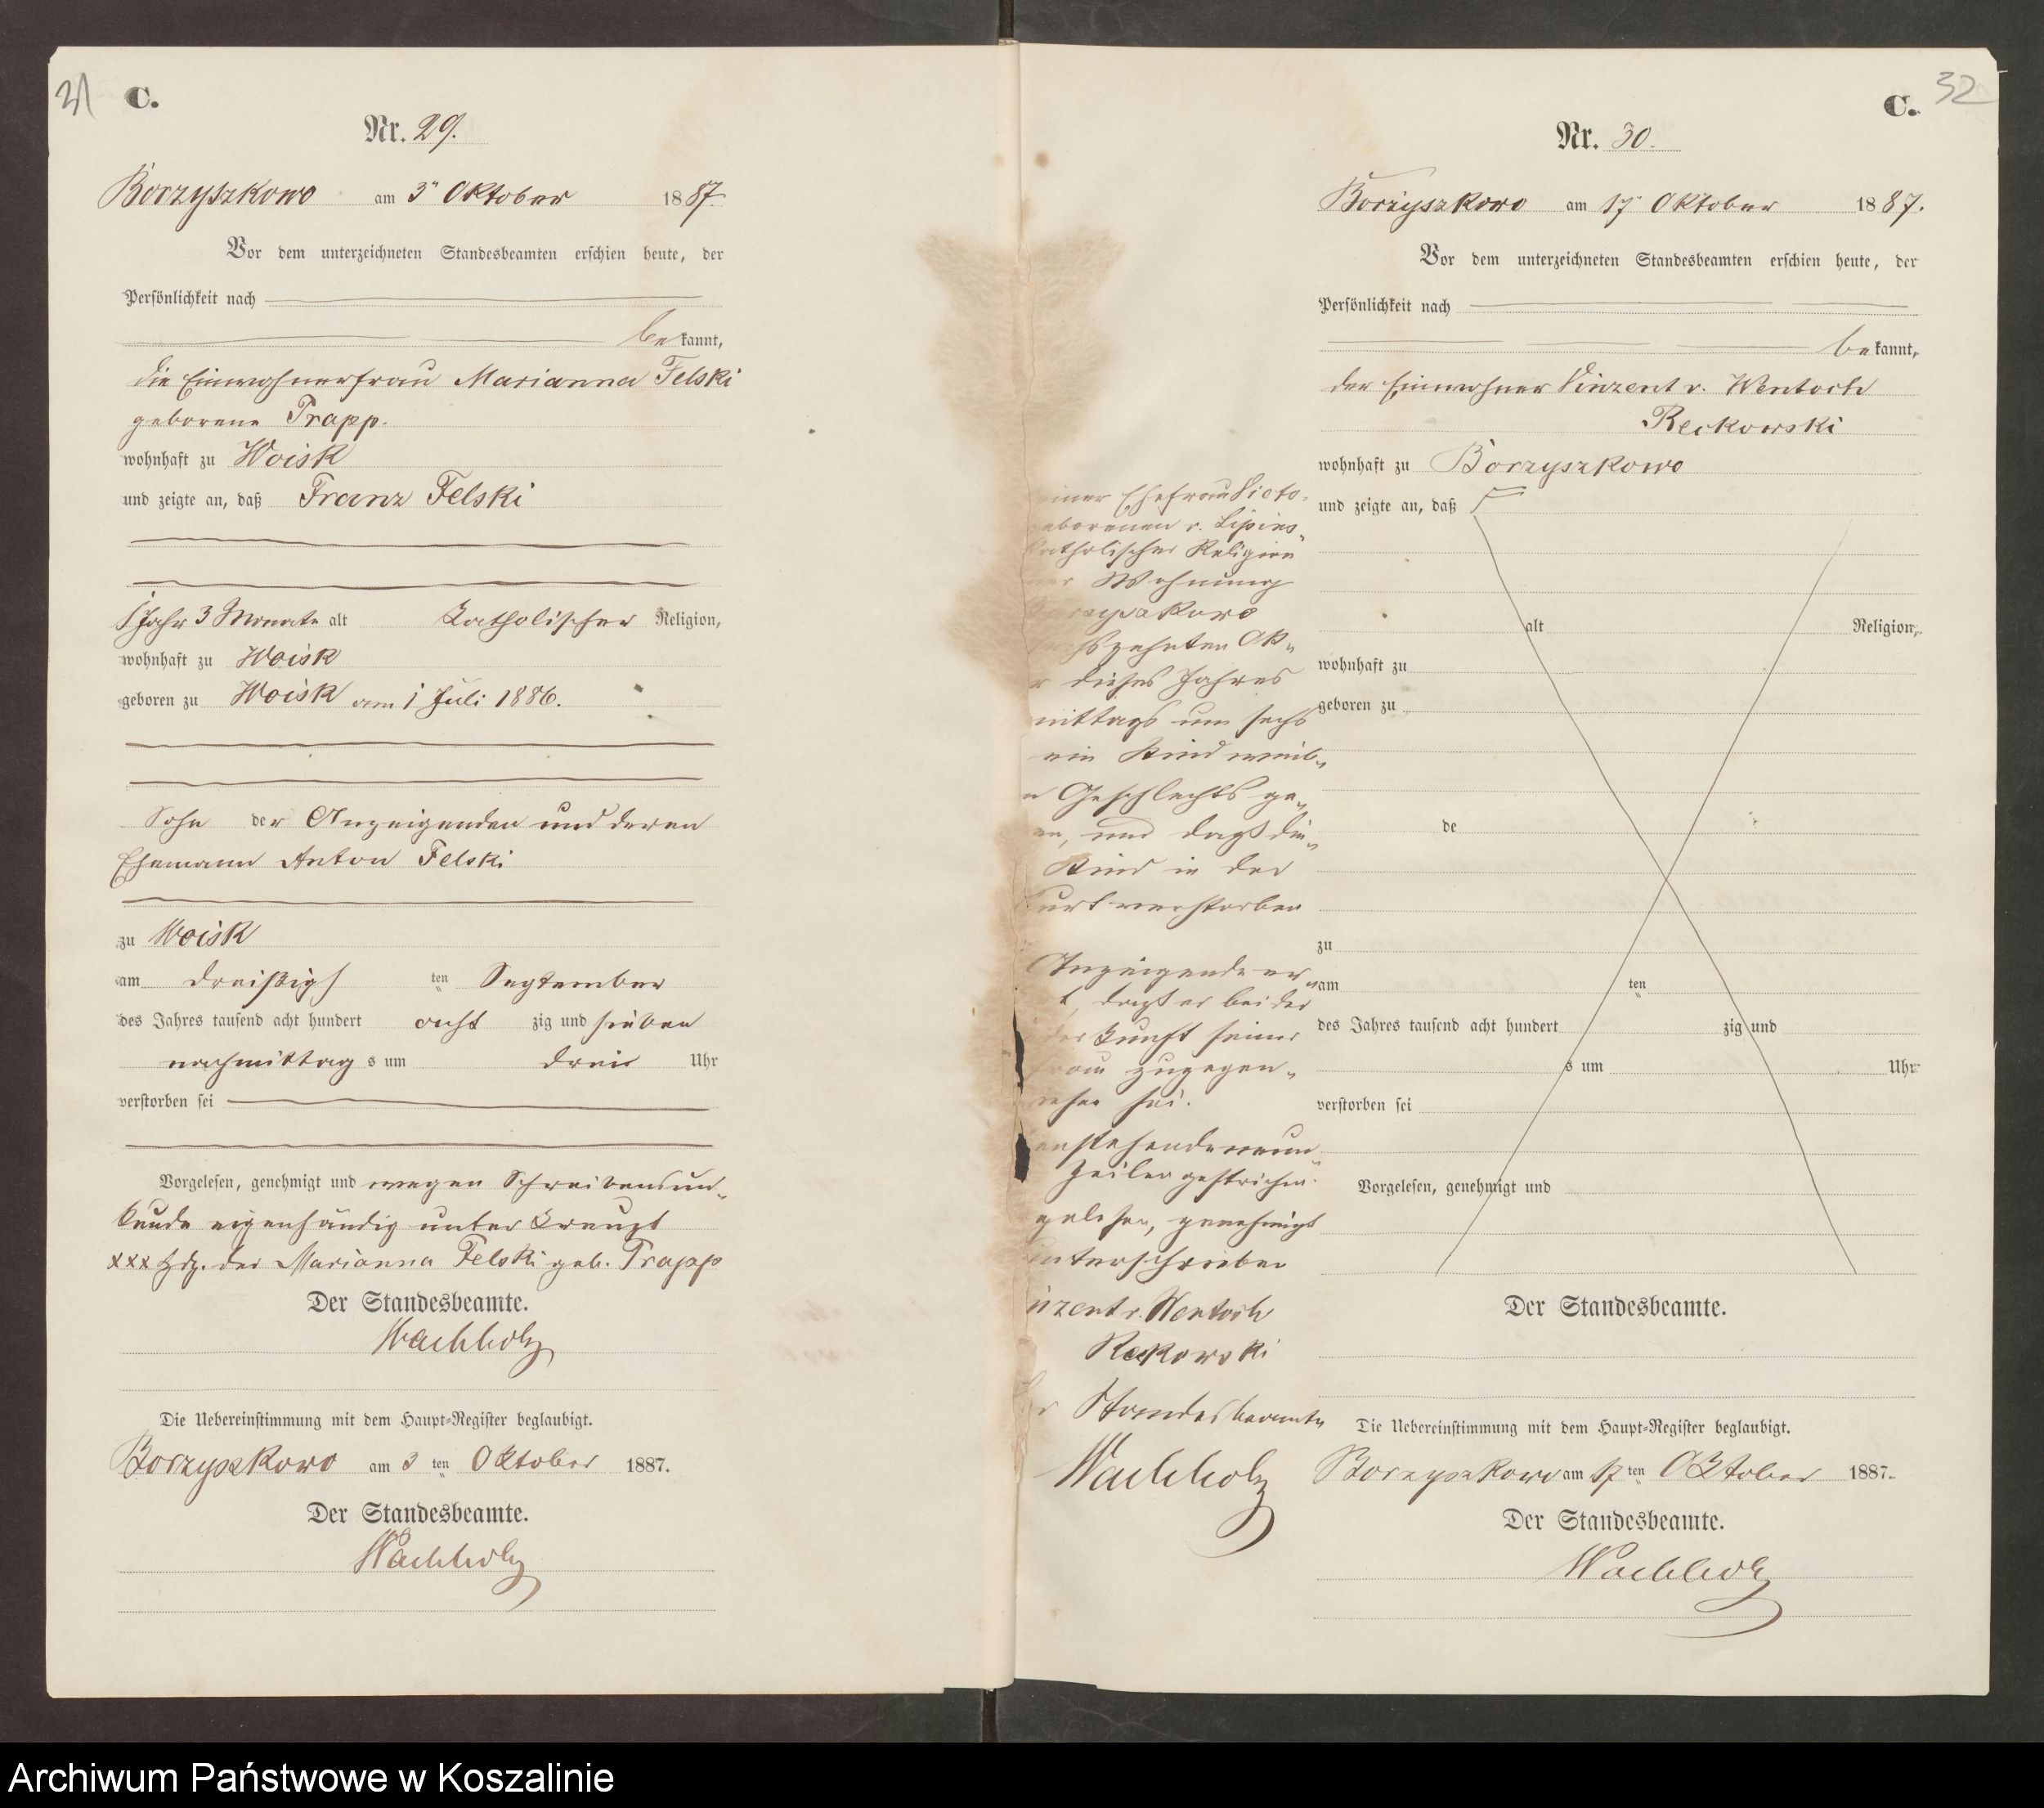 31
C.
Nr. 29.
Borzyszkowo am 3n Oktober 1887
Vor dem unterzeichneten Standesbeamten erschien heute, der
Persönlichkeit nach
bekannt,
die Einwohnerfrau Marianna Felski
geborene Trapp.
wohnhaft zu Woisk
und zeigte an, daß Franz Felski
1 Jahr 3 Monate alt Katholischer Religion,
wohnhaft zu Woisk
geboren zu Woisk am 1 Juli 1886.
Sohn der Anzeigenden und deren
Ehemann Anton Felski
zu Woisk
am dreißigs ten September
des Jahres tausend acht hundert acht zig und sieben
nachmittag s um drei Uhr
verstorben sei
Vorgelesen, genehmigt und wegen Schreibensun-
kunde eigenhändig unterkreuzt
xxx Hdz. der Marianna Felski geb. Trapp
Der Standesbeamte.
Wachholz
Die Uebereinstimmung mit dem Haupt-Register beglaubigt.
Borzyszkowo am 3 ten Oktober 1887.
Der Standesbeamte.
Wachholz
C. 32
Nr. 30.
Borzyszkowo am 17n Oktober 1887.
Vor dem unterzeichneten Standesbeamten erschien heute, der
Persönlichkeit nach
bekannt,
der Einwohner Vinzent v. Wentoch
Reckowski
wohnhaft zu Borzyszkowo
und zeigte an, daß
alt Religion,
wohnhaft zu
geboren zu
de
zu
am ten
des Jahres tausend acht hundert zig und
s um Uhr
verstorben sei
Vorgelesen, genehmigt und
Der Standesbeamte.
Die Uebereinstimmung mit dem Haupt-Register beglaubigt.
Borzyszkowo am 17 ten Oktober 1887.
Der Standesbeamte.
Wachholz
einer Ehefrau Victo-
geborenen v. Lipins-
katholischer Religion
Wohnung
Borzyszkowo
sechszehnten Ok-
r dieses Jahres
mittags um sechs
ein Kind weib-
n Geschlechts ge-
en, und daß die-
Kind in der
urt verstorben
Anzeigende er-
t, daß er bei der
derkunft seiner
frau zugegen-
wesen sei.
enstehende neun
Zeilen gestrichen.
gelesen, genehmigt
unterschrieben
inzent v. Wentoch
Reckowski
r Standesbeamte
Wachholz
Archiwum Państwowe w Koszalinie